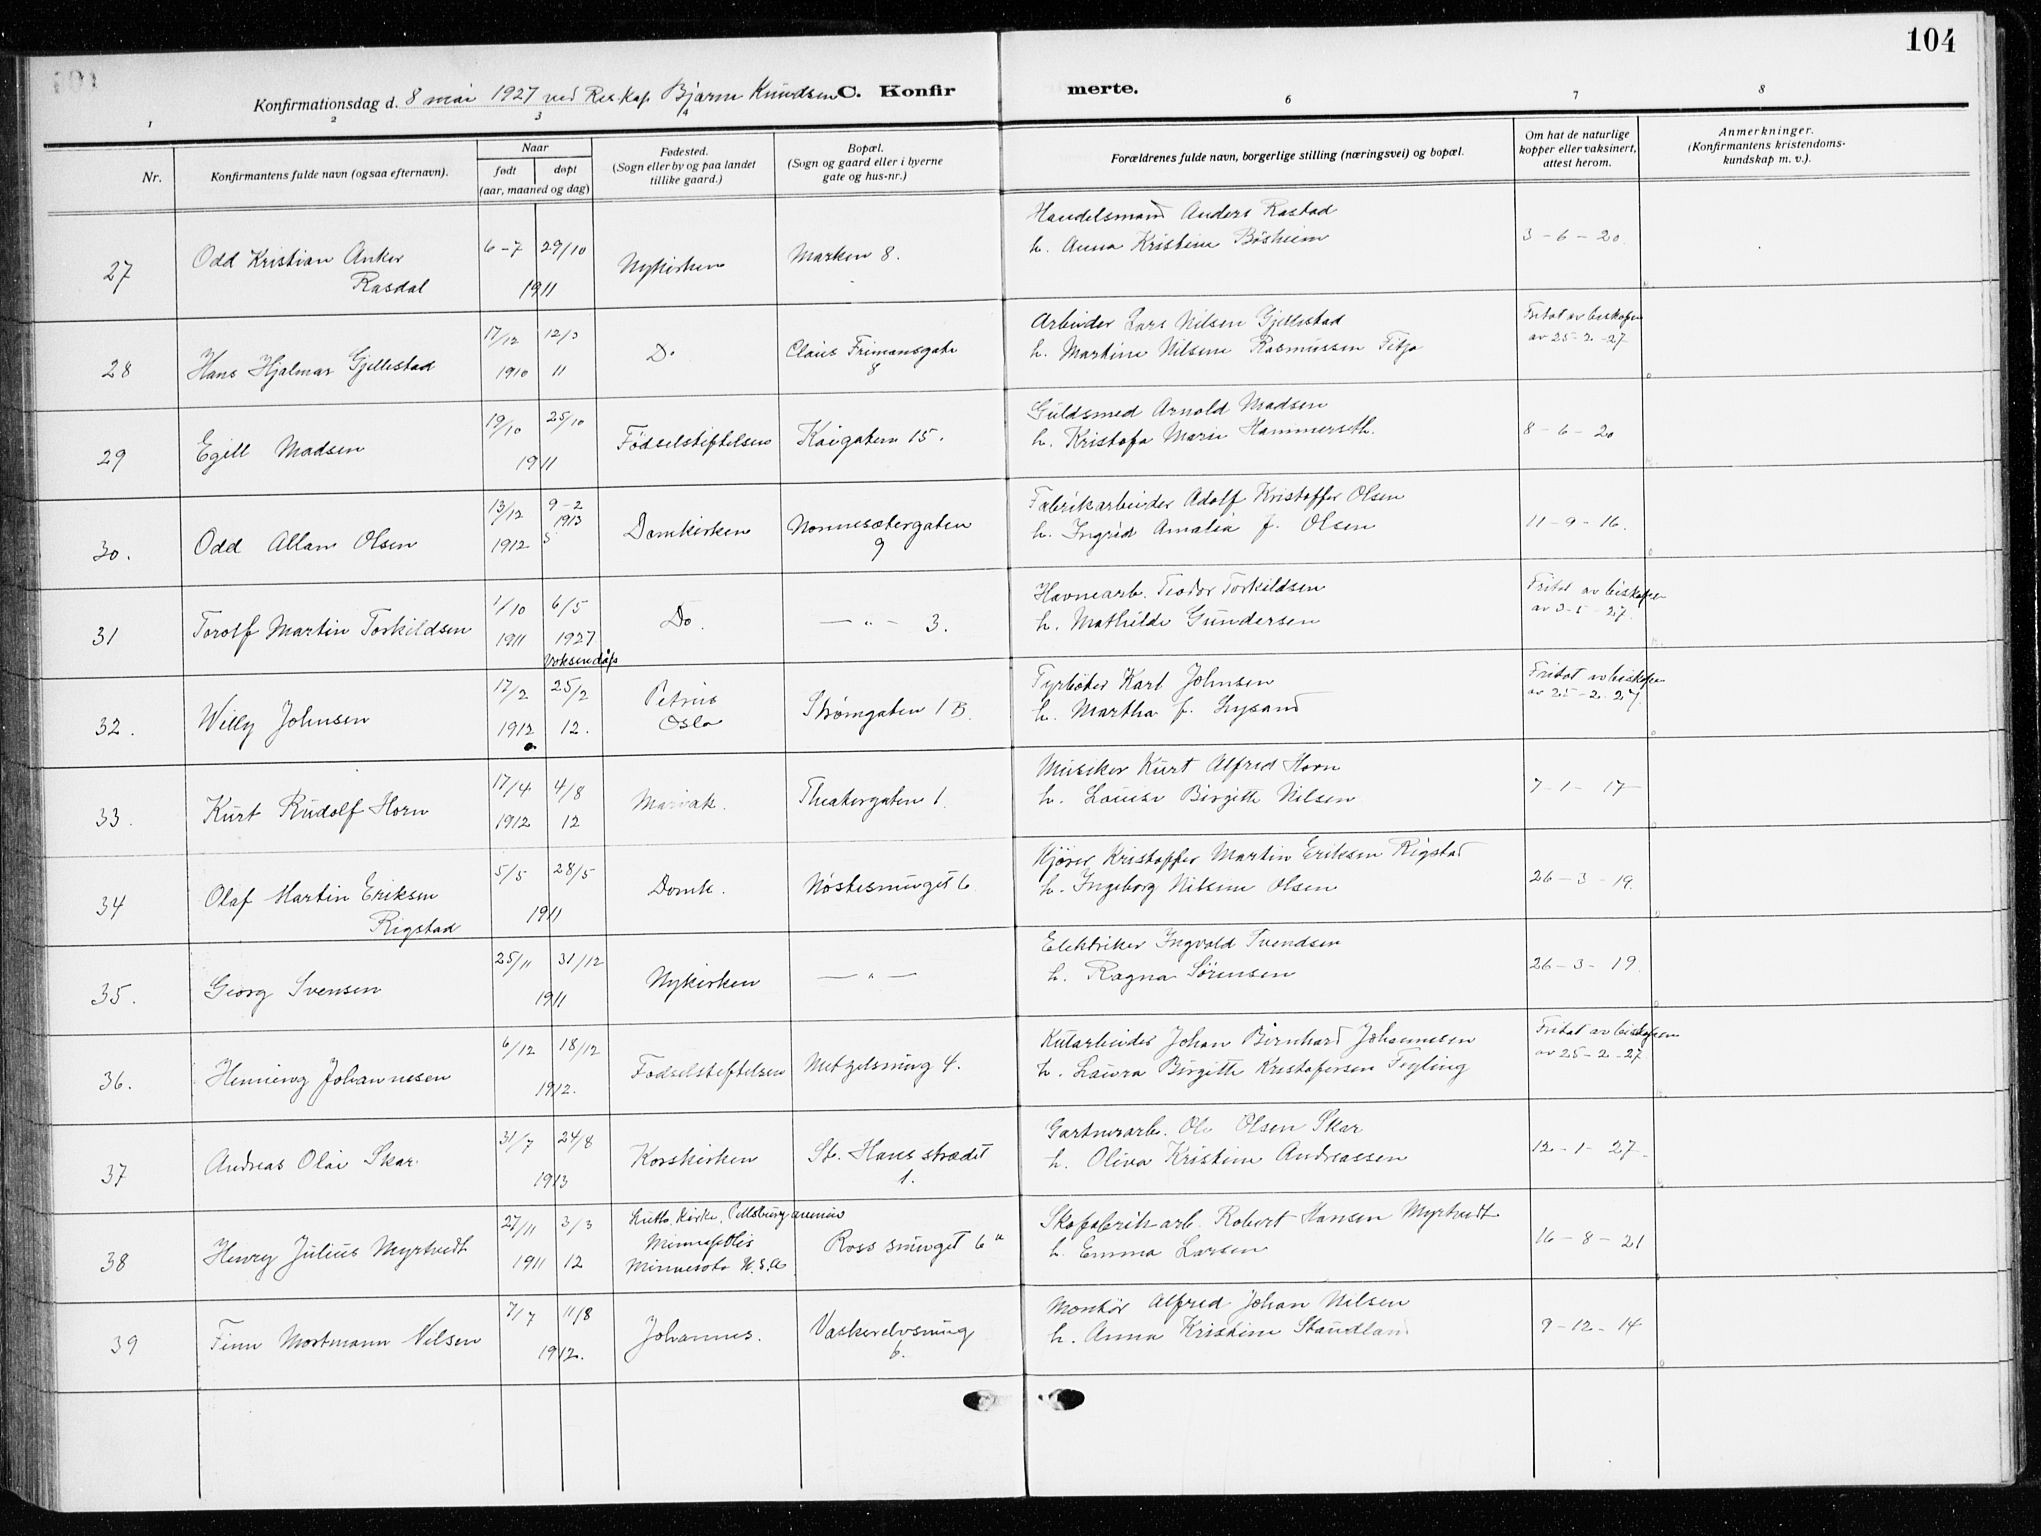 104
Konfirmationsdag d. 8 mai 1927 ved Res. kap. Bjarne Knudsen C. Konfirmerte.
1 2 3 4 6 7 8
Nr.
Konfirmantens fulde navn (ogsaa efternavn).
Naar
født døpt
(aar, maaned og dag)
Fødested.
(Sogn eller by og paa landet
tillike gaard.)
Bopæl.
(Sogn og gaard eller i byerne
gate og hus-nr.)
Forældrenes fulde navn, borgerlige stilling (næringsvei) og bopæl.
Om hat de naturlige
kopper eller vaksinert,
attest herom.
Anmerkninger.
(Konfirmantens kristendoms-
kundskap m. v.).
27 Odd Kristian Anker 6-7 29/10 Nykirken Marken 8. Handelsmand Anders Rastad 3-6-20.
Rasdal 1911 h. Anna Kristine Bösheim
28 Hans Hjalmar Gjellestad 17/12 12/3 Do Claus Frimansgate Arbeider Lars Nilsen Gjellestad Fritat av biskopen
1910 11 8 h. Martine Nilsine Rasmussen Fitja av 25-2-27
29 Egill Madsen 19/10 25/10 Födselstiftelsen Kaigaten 15. Guldsmed Arnold Madsen 8-6-20
1911 h. Kristofa Marie Hammerseth.
30. Odd Allan Olsen 13/12 9-2 Domkirken Nonnesætergaten Fabrikarbeider Adolf Kristoffer Olsen 11-9-16.
1912 1913 9 h. Ingrid Amalia f. Olsen
31 Torolf Martin Torkildsen 1/10 6/5 Do. — " — 3. Havnearb. Teodor Torkildsen Fritat av biskopen
1911 1927 h. Mathilde Gundersen av 3-5-27.
Voksendåp
32. Willy Johnsen 17/2 25/2 Petrus Strømgaten 1 B. Fyrbøter Karl Johnsen Fritat av biskopen
1912 12. Oslo h. Martha f. Lysand av 25-2-27.
33. Kurt Rudolf Horn 17/4 4/8 Mariak. Theatergaten 1. Musiker Kurt Alfred Horn 7-1-17
1912 12 h. Louise Birgitte Nilsen
34 Olaf Martin Eriksen 5/5 28/5 Domk. Nøstesmuget 6 Kjører Kristoffer Martin Eriksen Rigstad 26-3-19.
Rigstad 1911 h. Ingeborg Nilsine Olsen
35. Georg Svensen 25/11 31/12 Nykirken — " — Elektriker Ingvald Svendsen 26-3-19.
1911 h. Ragna Sörensen
36. Henning Johannesen 6/12 18/12 Fødselstiftelsen Metzelsmug 4. Kularbeider Johan Bernhard Johannesen Fritat av biskopen
1912. h. Laura Birgitte Kristofersen Fryling av 25-2-27
37 Andreas Olai Skar 31/7 24/8 Korskirken St. Hansstrædet Gartnerarb. Ole Olsen Skar 12-1-27.
1913 1. h. Oliva Kristine Andreassen
38 Henry Julius Myrtvedt 27/11 3/3 Luth. Kirke, Pittsburg avenue Ross smuget 6a Skofabrik arb. Robert Hansen Myrtvedt 16-8-21
1911 12 Minneapolis h. Emma Larsen
Minnesota U.S.A
39 Finn Mortmann Nilsen 7/7 11/8 Johannes. Vaskerelvsmug Montör Alfred Johan Nilsen 9-12-14
1912. 6. h. Anna Kristine Standland